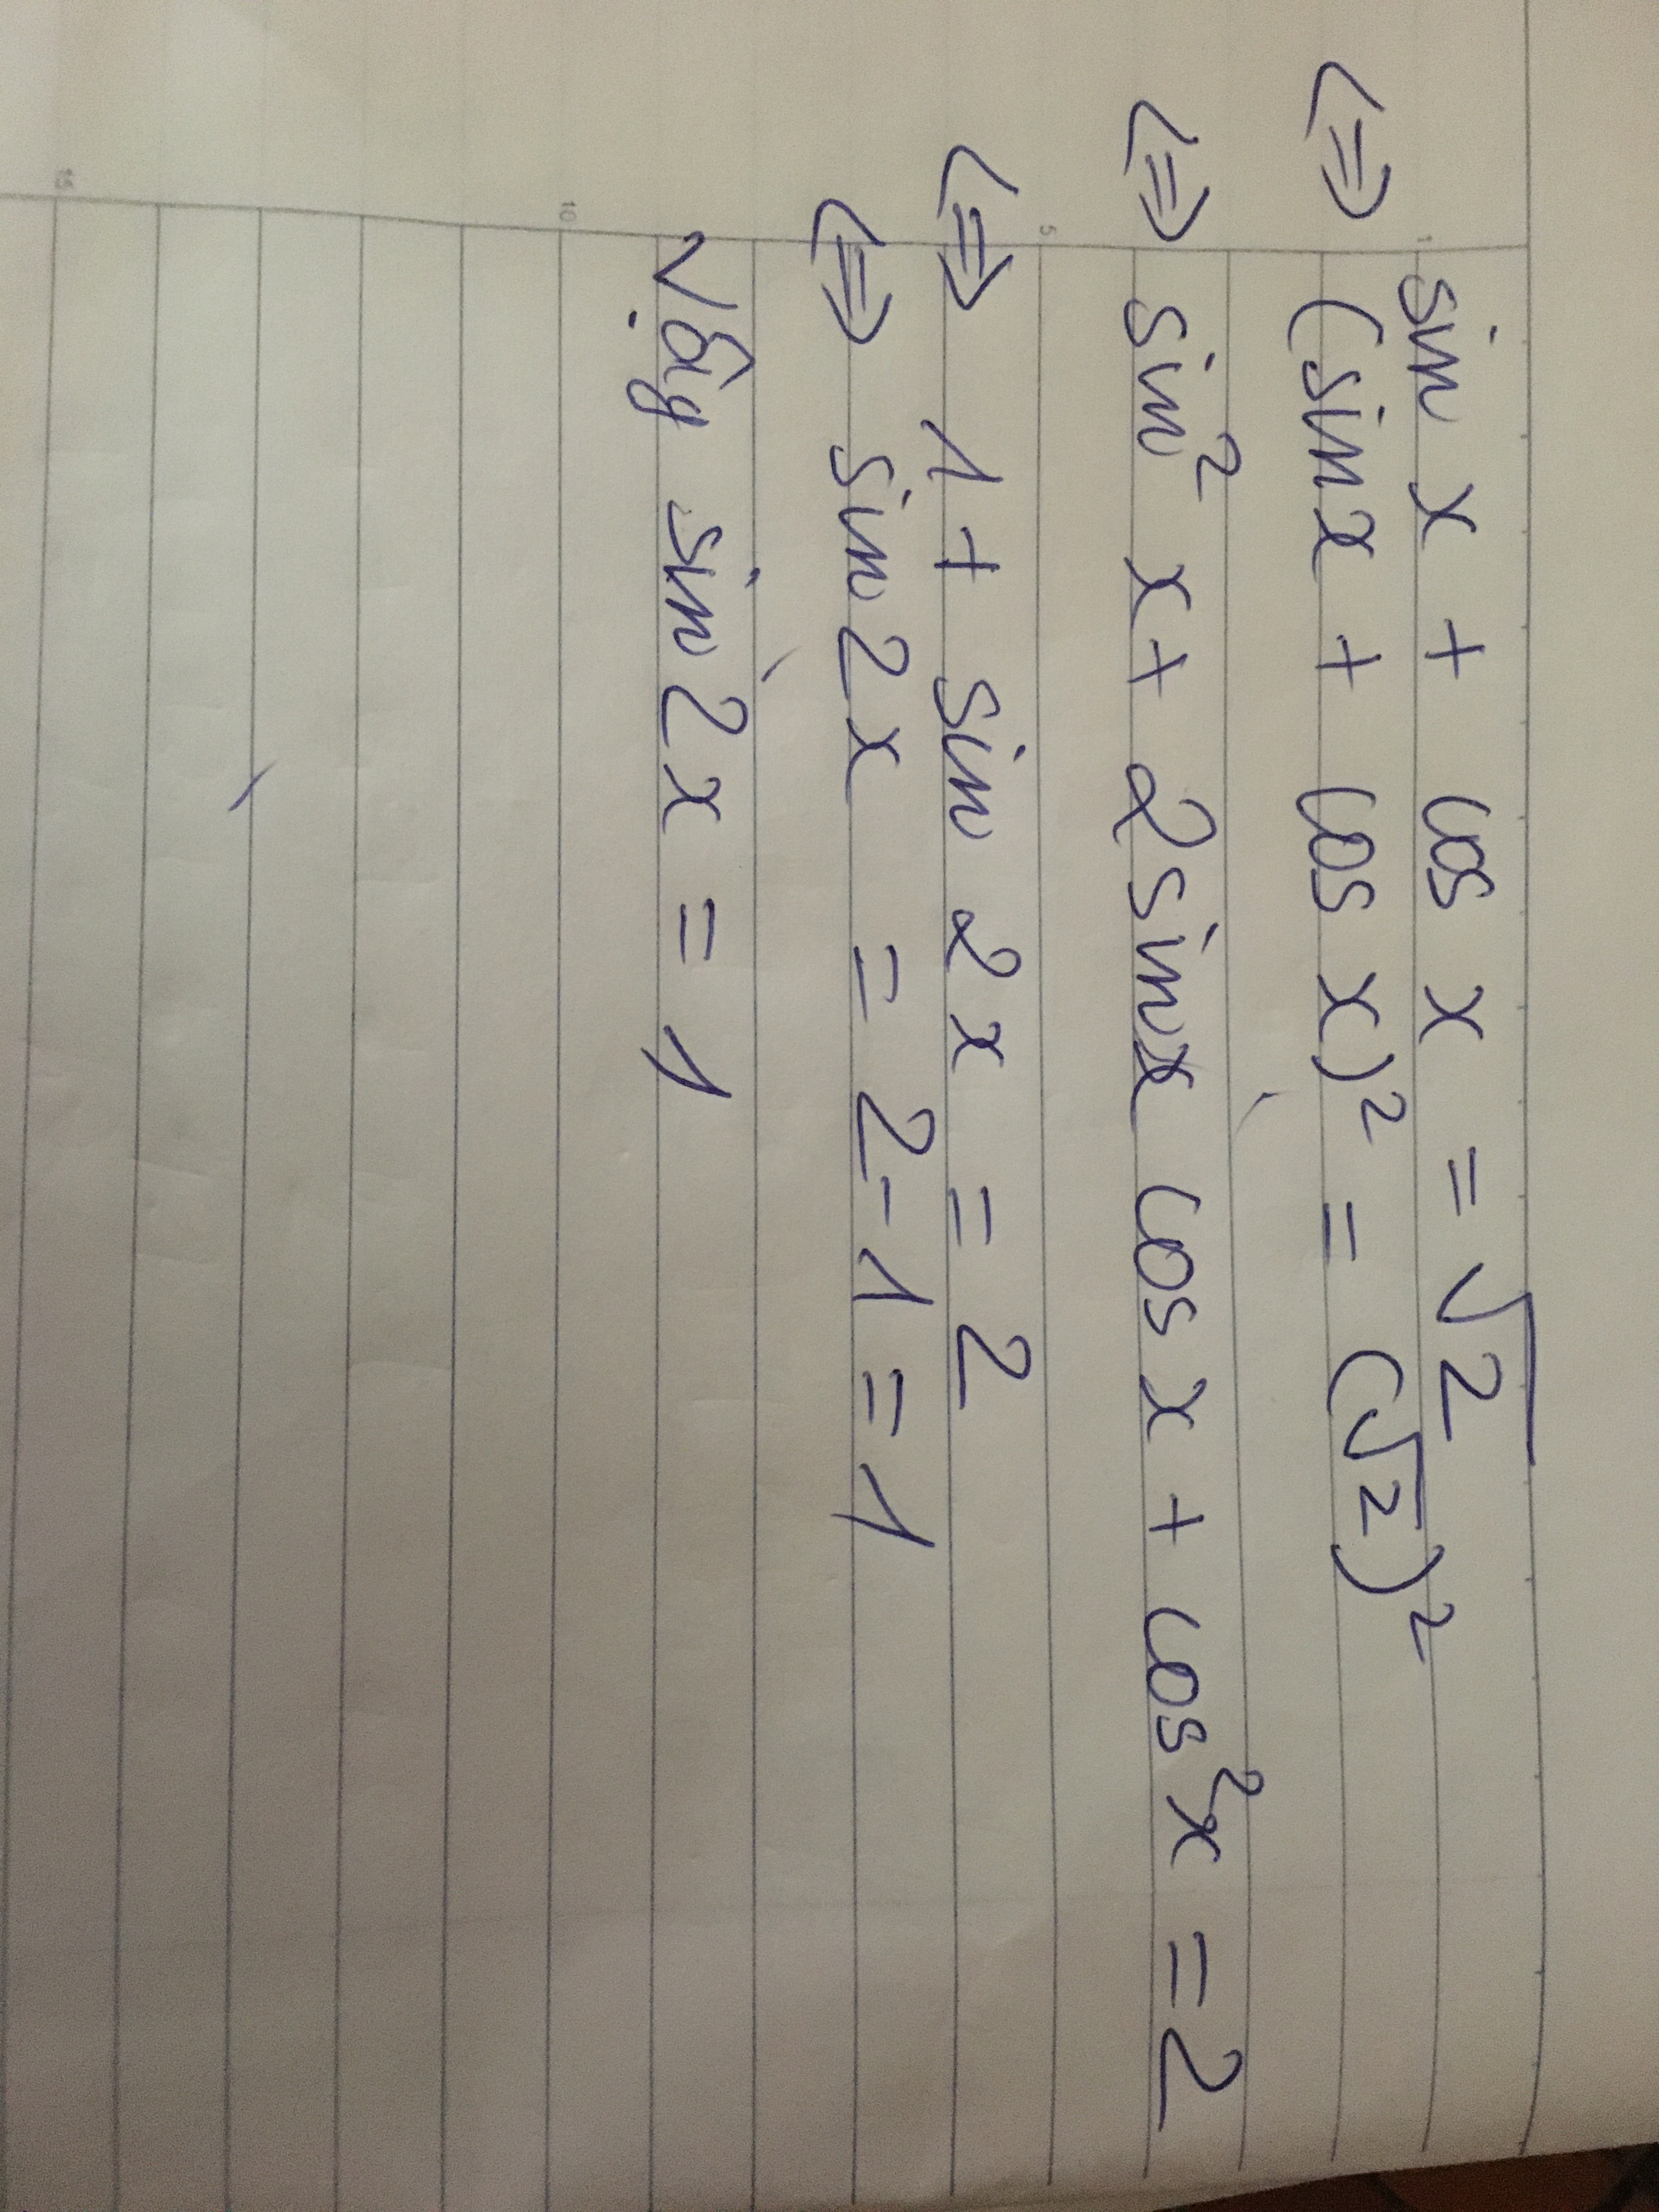 sin x + cos x = √2
⇔ (sin x + cos x)² = (√2)²
⇔ sin² x + 2 sin x cos x + cos² x = 2
⇔ 1 + sin 2x = 2
⇔ sin 2x = 2 - 1 = 1
Vậy sin 2x = 1
1
5
10
15